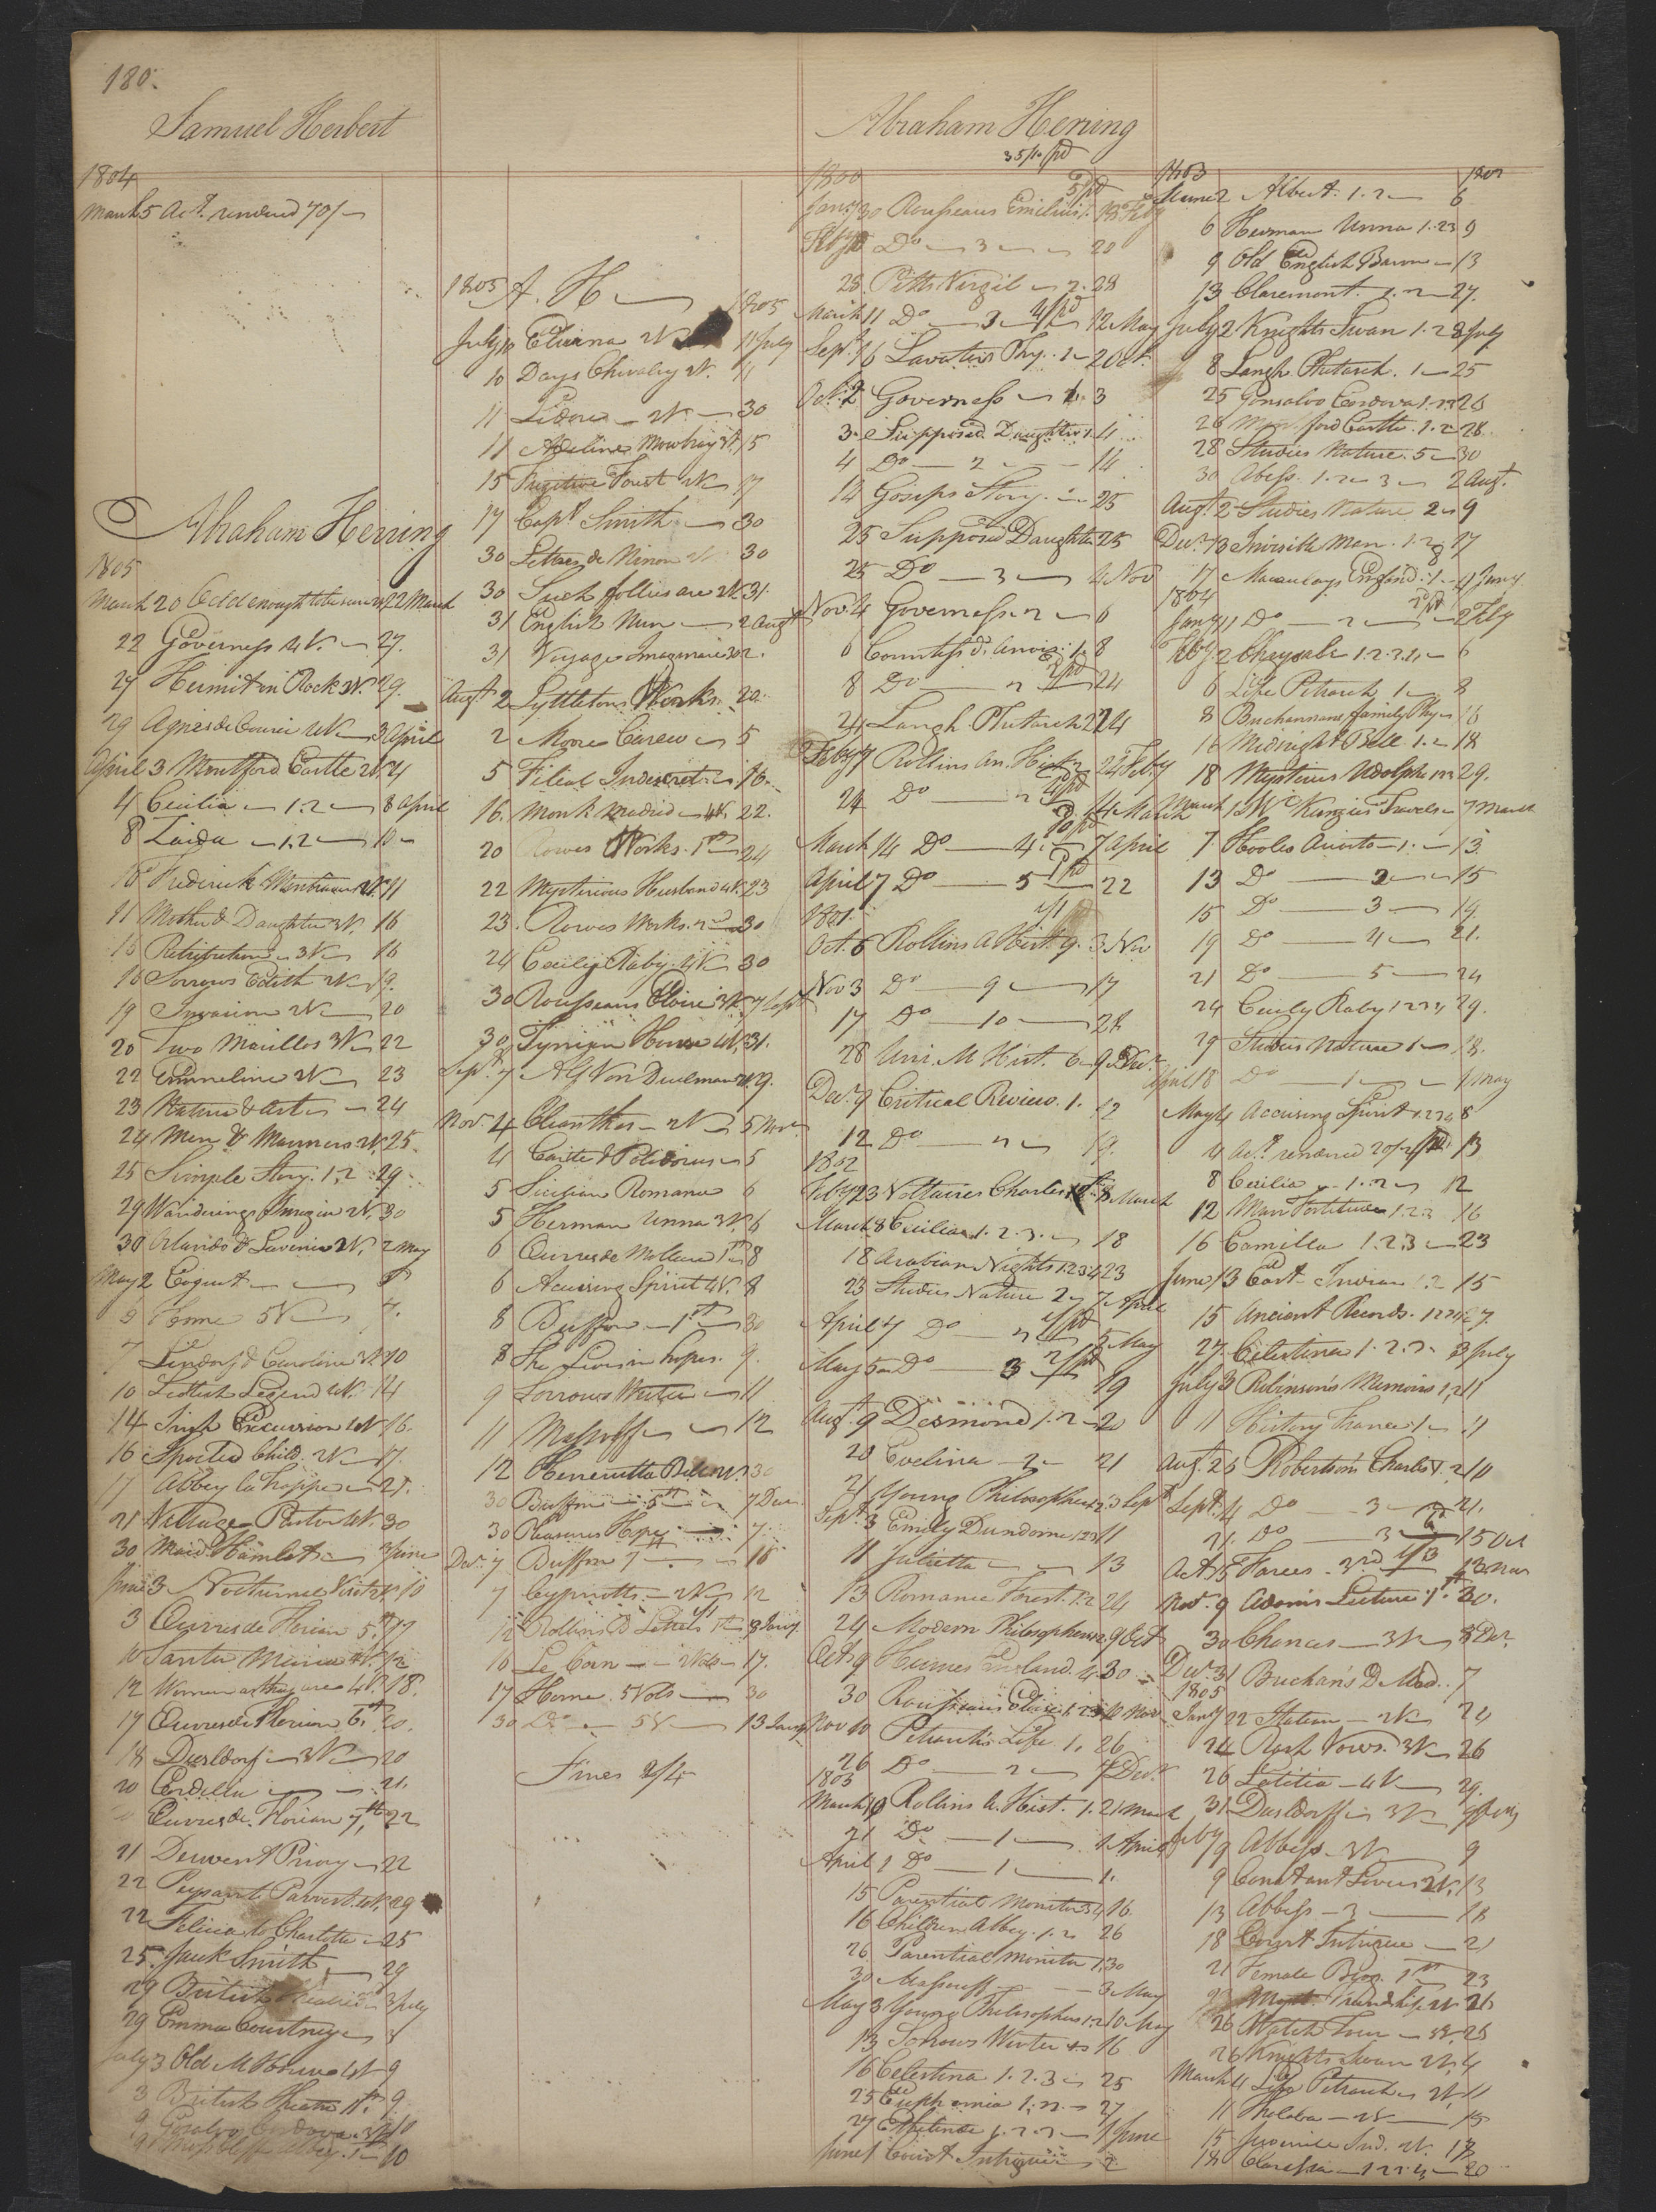 180.
Samuel Herbert
1804
March 5 Act. rendered 70/
Abraham Herring
1805
March 20 Odd enough to be sure 2V 22 March
22 Governess 4V. 27.
27 Hermit on Rock 3V. 29.
29 Agnes de Courci 4V 3 April
April 3 Montford Castle 2V. 4
4 Cecilia 1.2 8 April
8 Zaida 1.2 10
10 Frederick Montravers 2V. 11
11 Mother & Daughter 3V. 16
15 Retribution 3V 16
16 Sorrows Edith 2V 19.
19 Invasion 2V 20
20 Two Marillos 3V 22
22 Emmeline 2V 23
23 Nature & Art 24
24 Men & Manners 4V. 25
25 Simple Story. 1.2 29
29 Wanderings Imagin 2V. 30
30 Orlando & Lavinia 2V. 2 May
May 2 Coquet
5 Home 5V 7.
7 Lindorf & Caroline 3V. 10
10 Scottish Legend 4V. 14
14 Irish Excursion 4V 16.
16 Spoiled Child. 2V 17.
17 Abbey la Trappe 21.
21 Village Pastor 4V. 30
30 Maid Hamlet 3 June
June 3 Nocturnal Visit 4V 10
3 Œuvres de Florian 5th 17
10 Santa Maria 12
12 Woman as they are 4V. 18.
17 Œuvres de Florian 6th 20.
18 Dusseldorf 3V 20
20 Cordelia 21.
Œuvres de Florian 7th 22
21 Derwent Priory 22
22 Paysan Parvenu 4V. 29
22 Felicia to Charlotte 25
25 Jack Smith 29
29 British Theatre 3 July
29 Emma Courtney 3
July 3 Old M House 4V 9
3 British Theatre 1th. 9.
9 Gonsalvo Cordova. 3V 10
9 1st 10
1805 A. H 1805
July 10 Elvina 2V 11 July
10 Days Chivalry 2V. 11
11 Lidora 2V 30
11 Adeline Mowbray 3V. 15
15 Fugitive Forest 2V 17
17 Capt Smith 30
30 Lettres de Ninon 2V 30
30 Such follies are 2V 31.
31 English Nun 2 Augt
31 Voyages Imaginaires 30 2.
Augt 2 Lyttletons Works. 20.
2 Moore Carew 5
5 Filial Indiscret 16.
16. Monk Madrid 4V. 22.
20 Rowes Works. 1st 24
22 Mysterious Husband 4V. 23
23. Rowes Works. 2nd 30
24 Cecily Raby. 4V 30
30 Rousseaus Eloisa 3V 7 Sept
30 Tynian House 4V. 31.
Sept. 7 Alf Von Duelman 2V. 9.
Nov. 4 Cleanthes 2V 5 Novr
4 Castle & Polidorus 5
5 Sicilian Romance 6
5 Herman Unna 3V. 6
6 Œuvres de Moliere 1st 8
6 Accusing Spirit 4V. 8
8 Buffon 1st 30
8 The Lovers hopes. 9.
9 Sorrows Werter 11
11 Massouff 12
12 Henrietta Bellm 30
30 Buffon 5th 7 Decr.
30 Pleasures Hope 7
Dec. 7 Buffon 7 16
7 Cypriotts 2V 12
12 Rollins B Letters 1st 3 Jany.
16 Le Coin 2Vols 17.
17 Home. 5Vols 30
30 Do 5V 13 Jany
Fines 2/4
Abraham Herring
35/10 pd
1800
Jany 30 Rousseaus Emilius 1. 18 Feby
Feby 18 Do 3 28
28 Pitts Virgil 2. 28
March 11 Do 3 4/pd 12 May
Sept. 16 Lavaters Phy. 1 2 Oct.
Oct. 2 Governess 1 3
3 Supposed Daughter 1. 4
4 Do 2 14
14 Gossips Story. 25
25 Supposed Daughter 25
25 Do 3 4 Nov
Nov. 4 Governess 2 6
6 Countess d. Anois. 1. 8
8 Do 2 24
24 Langh Plutarch 2 24
Feby 7 Rollins An. Hist. 24 Feby
24 Do 2 14 March
March 14 Do 4. 7 April
April 7 Do 5 22
1801.
Oct. 6 Rollins A Hist. 9. 3 Nov
Nov 3 Do 9 17
17 Do 10 28
28 Uni. M Hist. 6 9 Decr
Dec. 9 Critical Review. 1. 12
12 Do 2 19.
1802
Feby 23 Voltaires Charles 12th 8 March
March 8 Cecilia 1.2.3. 18
18 Arabian Nights 1.2.3.4 23
23 Studies Nature 2 7 April
April 7 Do 2 5 May
May 5 Do 3 19
Augt. 9 Desmond 1.2 20
20 Evelina 2 21
21 Young Philosopher 1.2. 3 Sept
Sept. 3 Emily Dundorne 1.2.3 11
11 Julietta 13
13 Romance Forest. 1.2 24
24 Modern Philosophers 2. 9 Oct
Oct. 9 Humes England. 4. 30
30 Rousseaus Eloisa 1.2.3.4 10 Nov
Nov 10 Petrarchs Life 1. 26
26 Do 2 7 Decr
1803
March 19 Rollins A. Hist. 1. 21 March
21 Do 1 1 April
April 1 Do 1 1.
15 Parential Monitor 3.4 16.
16 Children Abbey. 1.2 26
26 Parential Monitor 1. 30
30 Massouff 3 May
May 3 Young Philosopher 1.2 10 May
13 Sorrows Werter 16
16 Celestina 1.2.3 25
25 Euphemia 1.2. 27
27 Ethelinde 1.2.3 1 June
June 1 Court Intrigue 2
1803 1803
June 2 Albert. 1.2 6
6 Herman Unna 1.2.3 9
9 Old English Baron 13
13 Claremont. 1.2 27.
July 2 Knights Swan 1.2 8 July
8 Langh. Plutarch. 1 25
25 Gonsalvo Cordova 1.2.3 26
26 Montford Castle. 1.2 28.
28 Studies Nature. 5 30
30 Abess. 1.2 3 2 Augt.
Augt. 2 Studies Nature 2 9
Decr. 13 Invisible Man. 1.2 17
17 Macaulays England. 1. 11 Jany.
1804
Jany 11 Do 2 2 Feby
Feby. 2 Chrysale 1.2.3.4 6
6 Life Petrarch 1 8
8 Buchannans family Phyn 16
16 Midnight Bell 1.2 18
18 Mysteries Udolpho 1.2.3 29.
March 1 McKenzies Travels 7 March
7 Hooles Ariosto 1. 13
13 Do 2 15
15 Do 3 19.
19 Do 4 21.
21 Do 5 24
24 Cecily Raby 1.2.3.4 29.
29 Studies Nature 1 18.
April 18 Do 1 4 May
May 4 Accusing Spirit 1.2.3.4 8
4 Act. rendered 20/ pd 13
8 Cecilia 1.2 12
12 Man Fortitude 1.2.3 16
16 Camilla 1.2.3 23
June 13 East Indian 1.2 15
15 Ancient Records. 1.2.3.4 27.
27. Celestina 1.2.3. 3 July
July 3 Robinson's Memoirs 1.2 11
11 History France 1 11
Aug. 26 Robertsons Charles V. 2 10
Sept. 4 Do 3 21.
21. Do 3 15 Oct
Oct. 15 Farces. 3rd 13 Nov
Nov. 9 Adams Lecture 1st. 30.
30 Chances 3V 8 Decr
Dec. 31 Buchan's D. Med. 7
1805
Jany 22 Station 2V 24
24 Rash Vows. 3V 26
26 Letitia 4V 29.
31 Dusseldorff 3V
Feby 9 Abbess 3V 9
9 Constant Lover 2V. 13
13 Abbess 3 18
18 Court Intrigue 21
21 Female Biog. 1st 23
Friendship 2V 26
26 Watch Tower 26
26 Knights Swan 2V. 4
March 4 Life Petrarch 2V. 11
11 Thalaba 2V 15
15 Juvenile Ind. 2V. 18
18 Clarissa 1.2.3.4 20